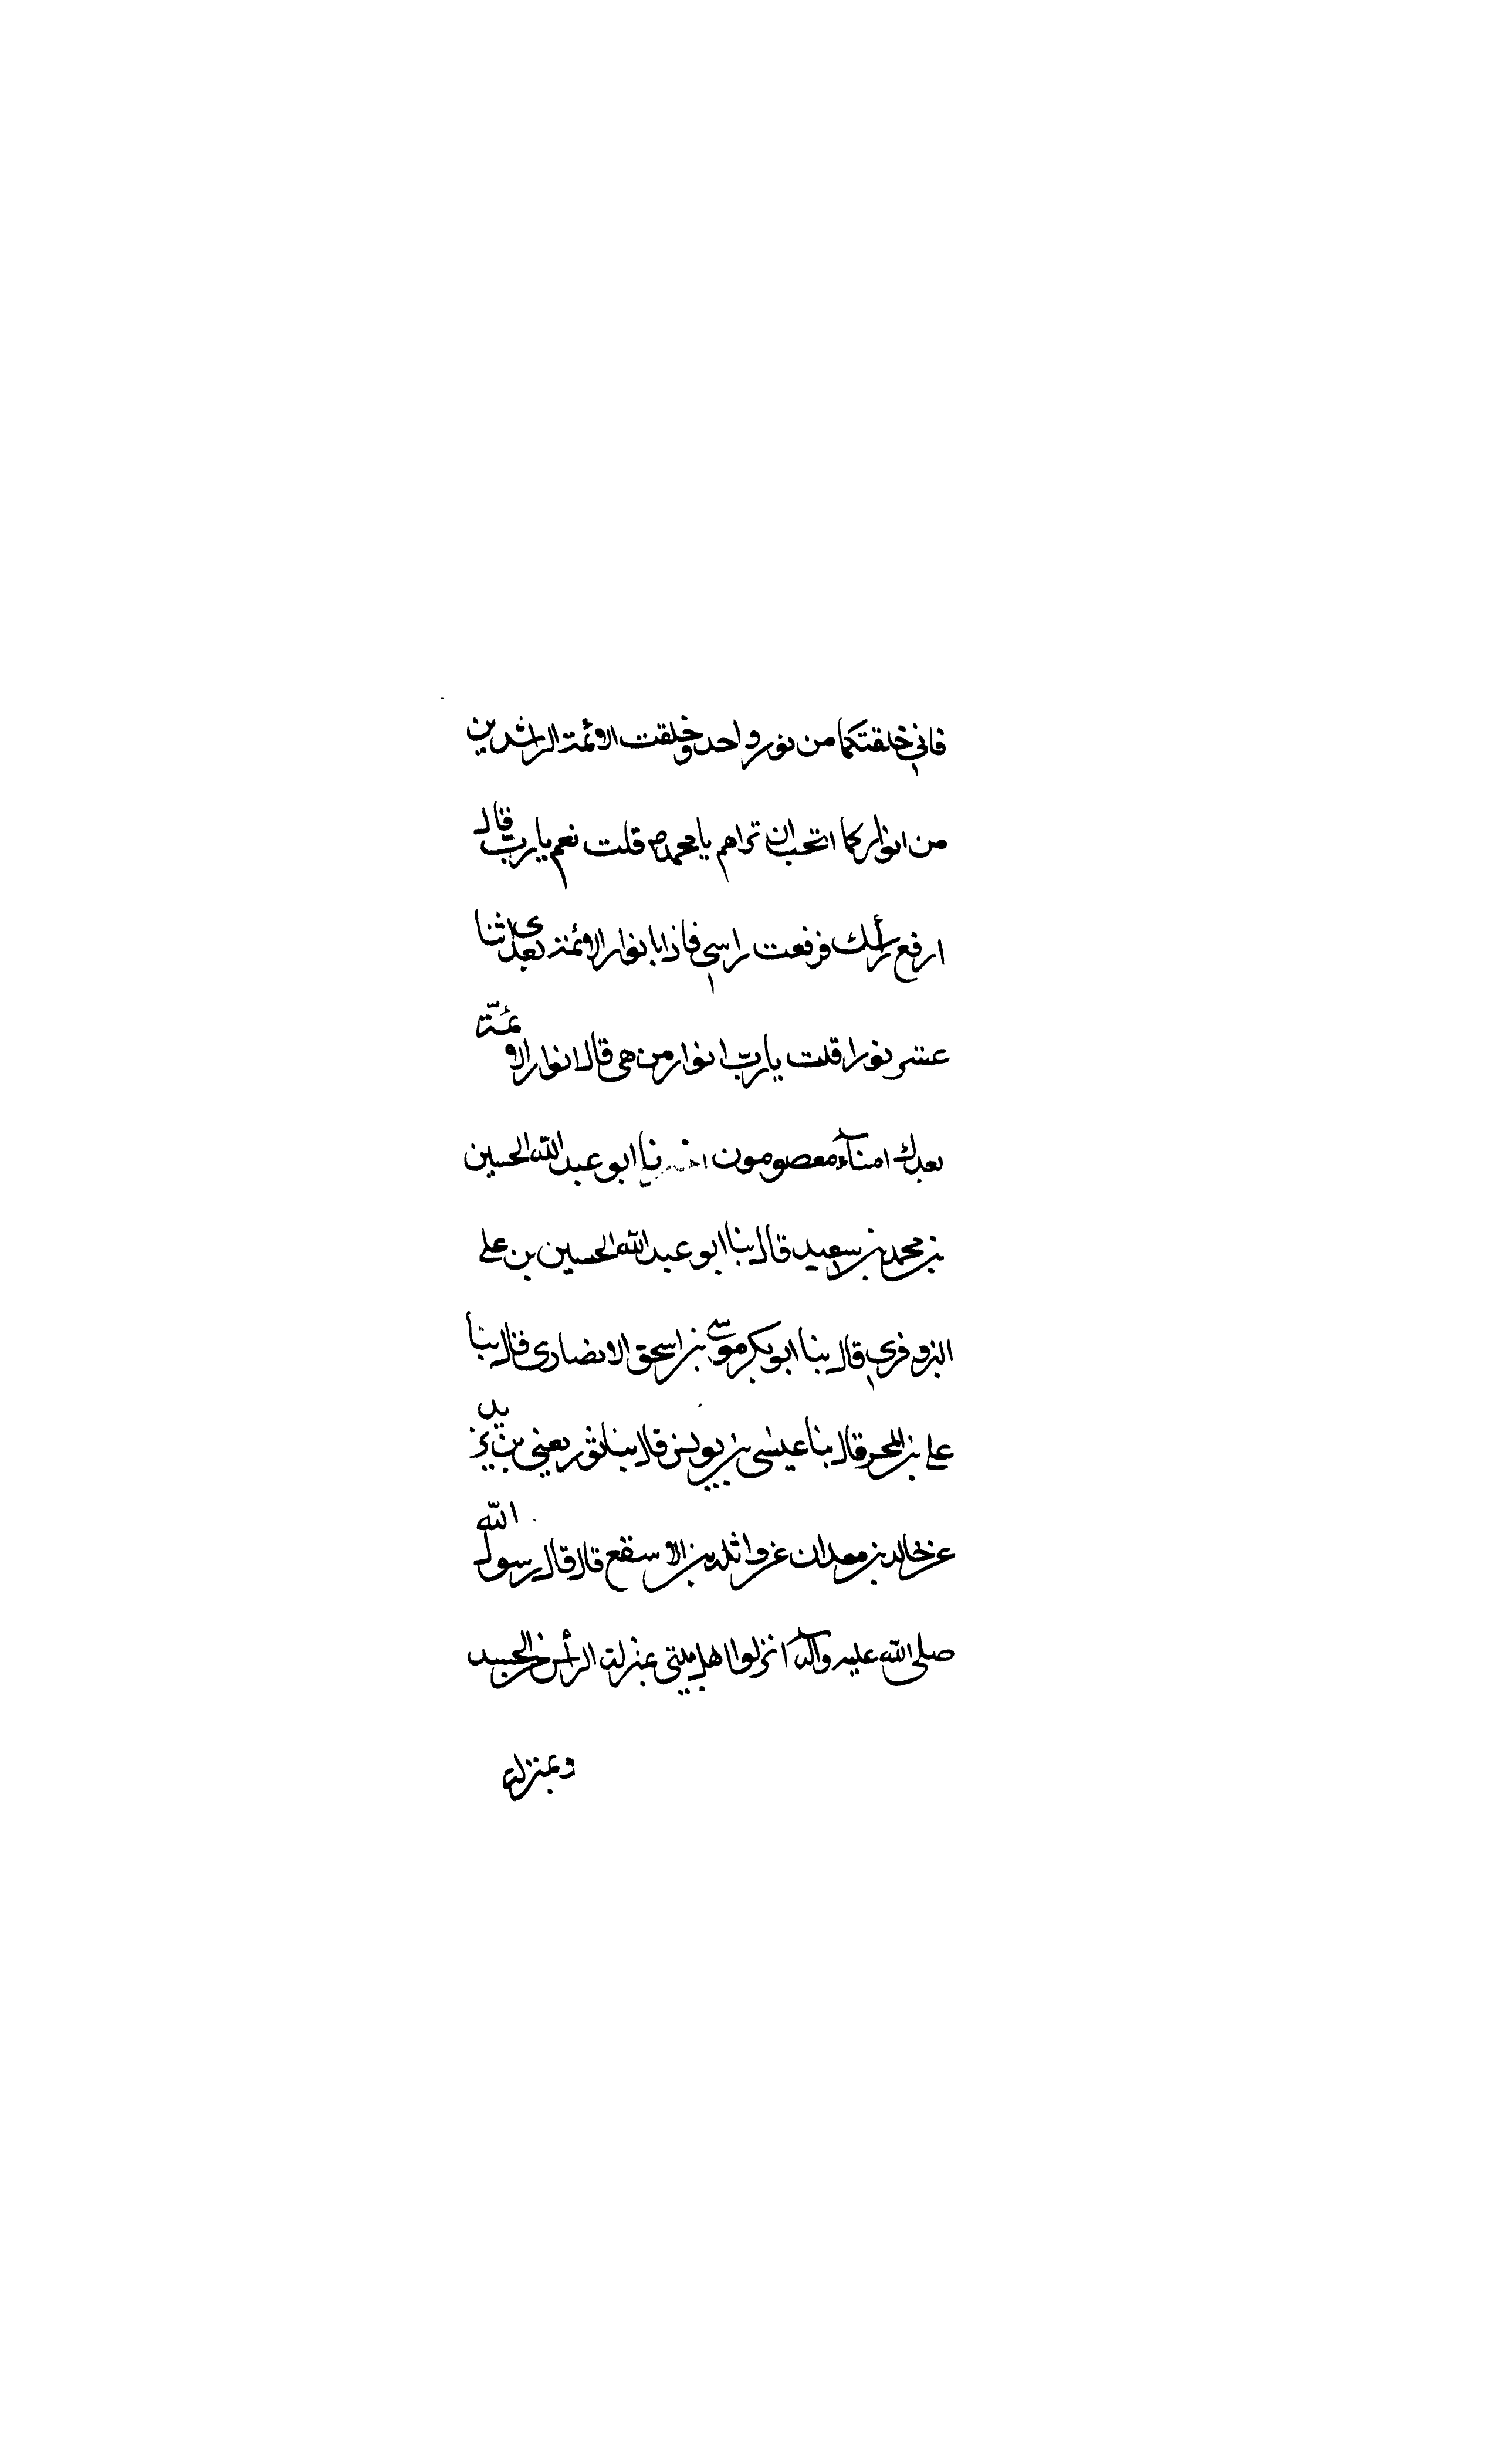 فاني خلقتكما من نور واحد وخلقت الائمة الراشدين
من انواركما اتحب ان تراهم يا محمد ص قلت نعم يا رب قال
ارفع رأسك فرفعت راسي فاذا بانوار الائمة بعدي اثنا
عشر نورا قلت يا رب انوار من هي قال انوار الائمة
بعدك امناء معصومون ابو عبد الله الحسين
بن محمد بن سعيد قال بنا ابو عبد الله الحسين بن علي
البزوفري قال بنا ابو بكر موسى بن اسحق الانصاري قال بنا
علي بن قال بنا عيسى بن يونس قال بنا ثور يعني بن يزيد
عن خالد بن معدان عن واثلة بن الاسقع قال قال رسول الله
صلى الله عليه وآله انزلوا اهل بيتي بمنزلة الرأس من الجسد
وبمنزلة